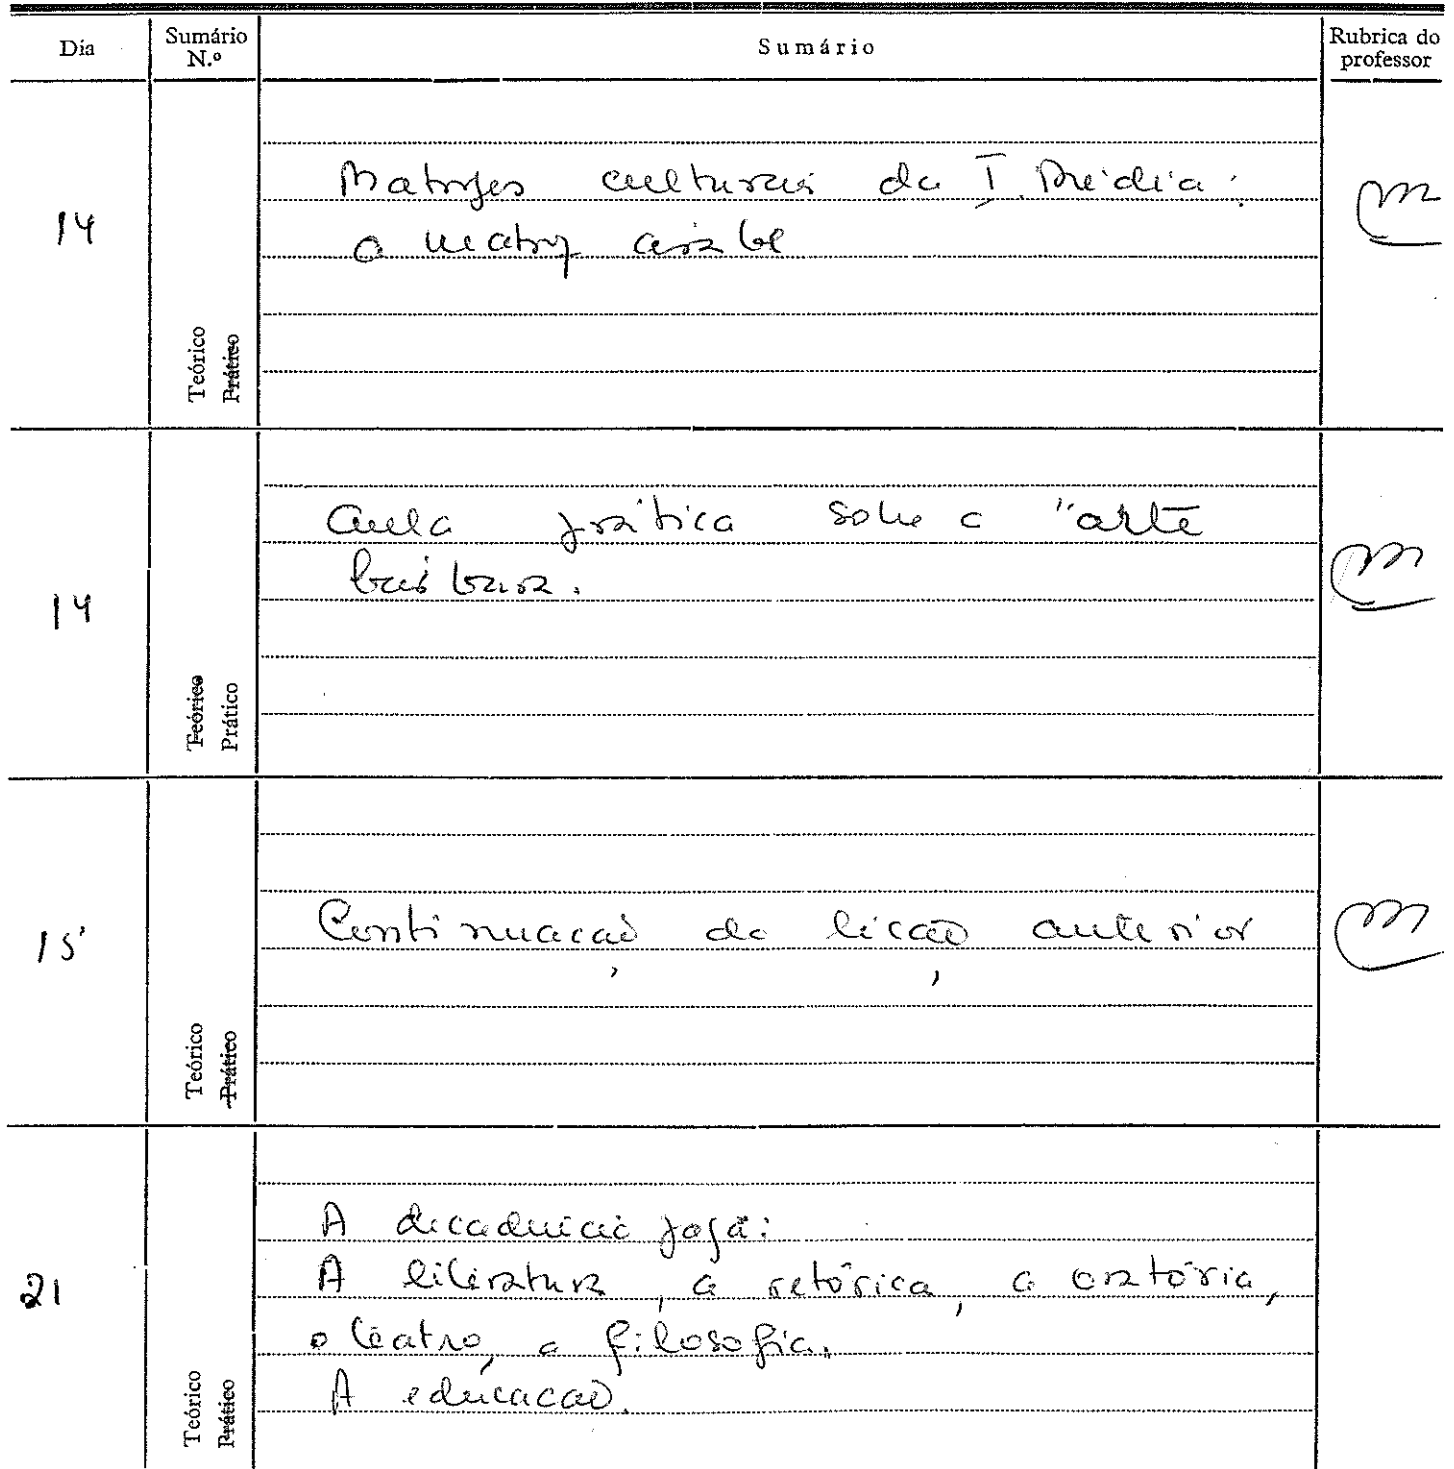 Dia
Sumário
N.º
Sumário
Rubrica do
professor
14
Matrizes culturais da I. Média:
a matriz árabe
Teórico
Prático
14
Aula prática sobre a "arte
bárbara.
Teórico
Prático
15
Continuação da lição anterior
Teórico
Prático
21
A decadência
A literatura, a retórica, a oratória,
o teatro, a filosofia.
A educação.
Teórico
Prático